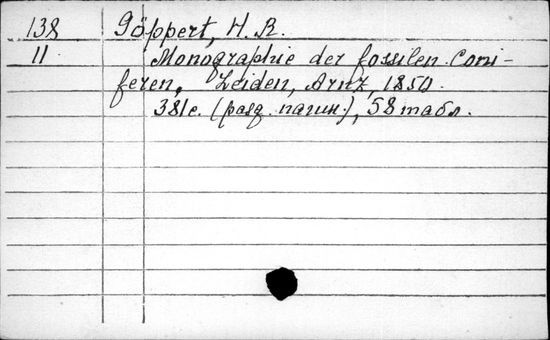 138 Göppert, H. R.
11 Monographie der fossilen Coni-
feren, Leiden, Arnz, 1850.
381 с. (разд. пагин.), 58 табл.